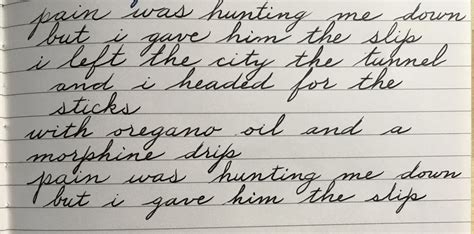 pain was hunting me down
but i gave him the slip
i left the city the tunnel
and i headed for the
sticks
with oregano oil and a
morphine drip
pain was hunting me down
but i gave him the slip